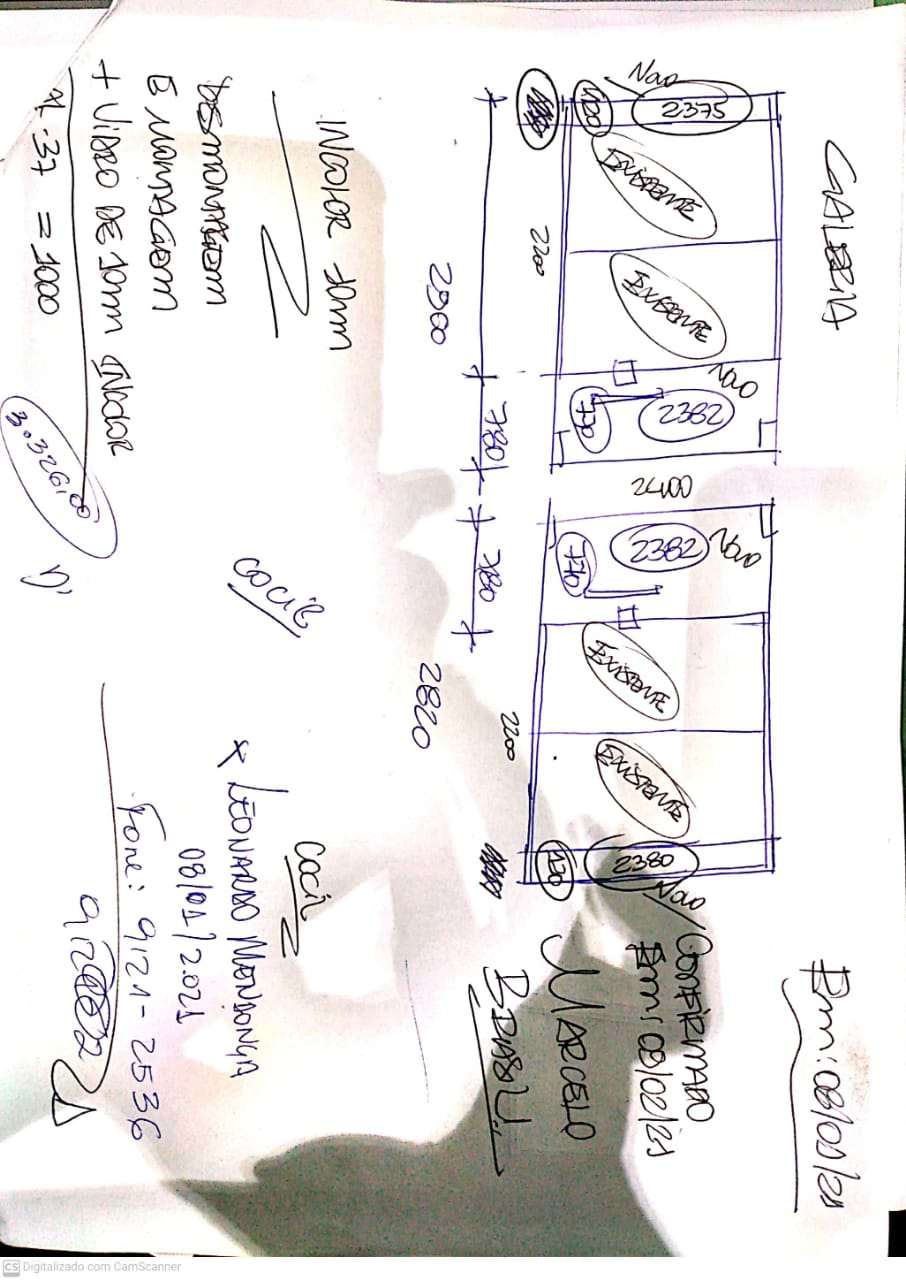 GALERIA
Em: 08/01/21
Nao
2375
120
EXISTENTE
EXISTENTE
Nao
2382
770
2400
2382
Nao
770
EXISTENTE
EXISTENTE
2380
Nao
120
CONFIRMADO
Em: 08/02/21
MARCELO
2200
2200
780
780
2820
INCOLOR 10mm
DESMONTAGEM
E MONTAGEM
+ VIDRO DE 10mm INCOLOR
= 1000
3.326,00
COCIL
COCIL
x LEONARDO MENDONÇA
08/01/2021
Fone: 9121-2536
CS Digitalizado com CamScanner